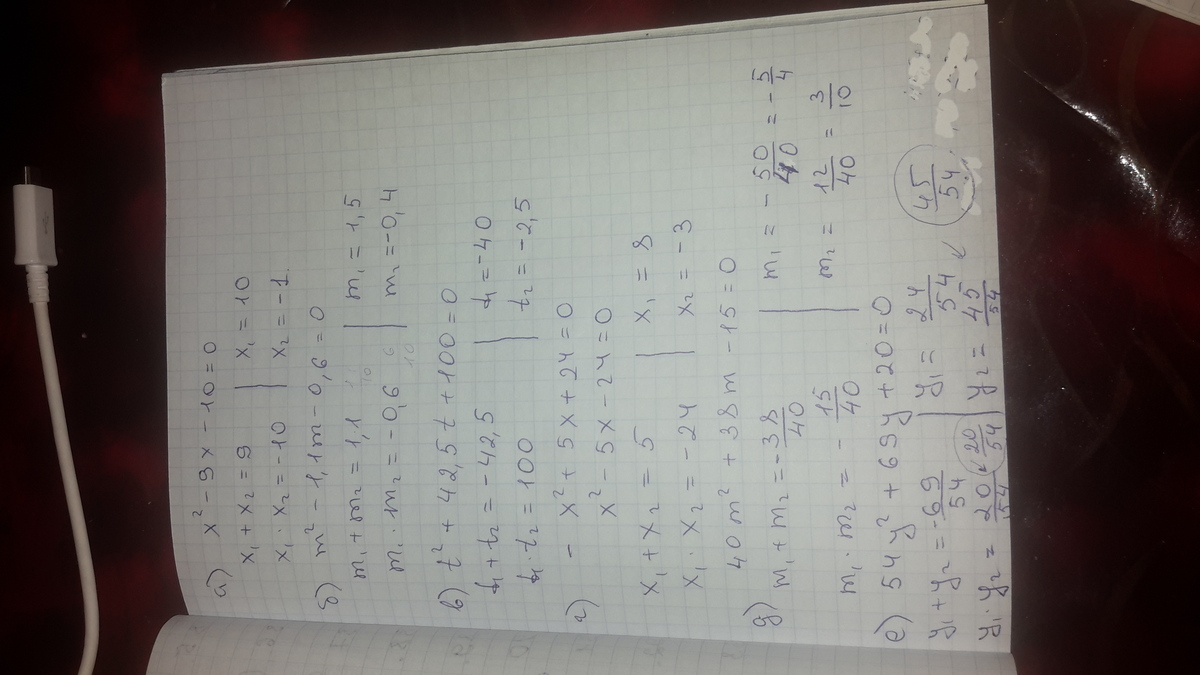 а) x² - 9x - 10 = 0
x₁ + x₂ = 9 | x₁ = 10
x₁ · x₂ = -10 | x₂ = -1.
б) m² - 1,1m - 0,6 = 0
m₁ + m₂ = 1,1 | m₁ = 1,5
m₁ · m₂ = -0,6 | m₂ = -0,4
в) t² + 42,5t + 100 = 0
t₁ + t₂ = -42,5 | t₁ = -40
t₁ · t₂ = 100 | t₂ = -2,5
г) - x² + 5x + 24 = 0
x² - 5x - 24 = 0
x₁ + x₂ = 5 | x₁ = 8
x₁ · x₂ = -24 | x₂ = -3
40m² + 38m - 15 = 0
д) m₁ + m₂ = -38/40 | m₁ = -50/40 = -5/4
m₁ · m₂ = -15/40 | m₂ = 12/40 = 3/10
е) 54y² + 69y + 20 = 0
y₁ + y₂ = -69/54 | y₁ = 24/54 ↙ 45/54
y₁ · y₂ = 20/54 20/54 | y₂ = 45/54